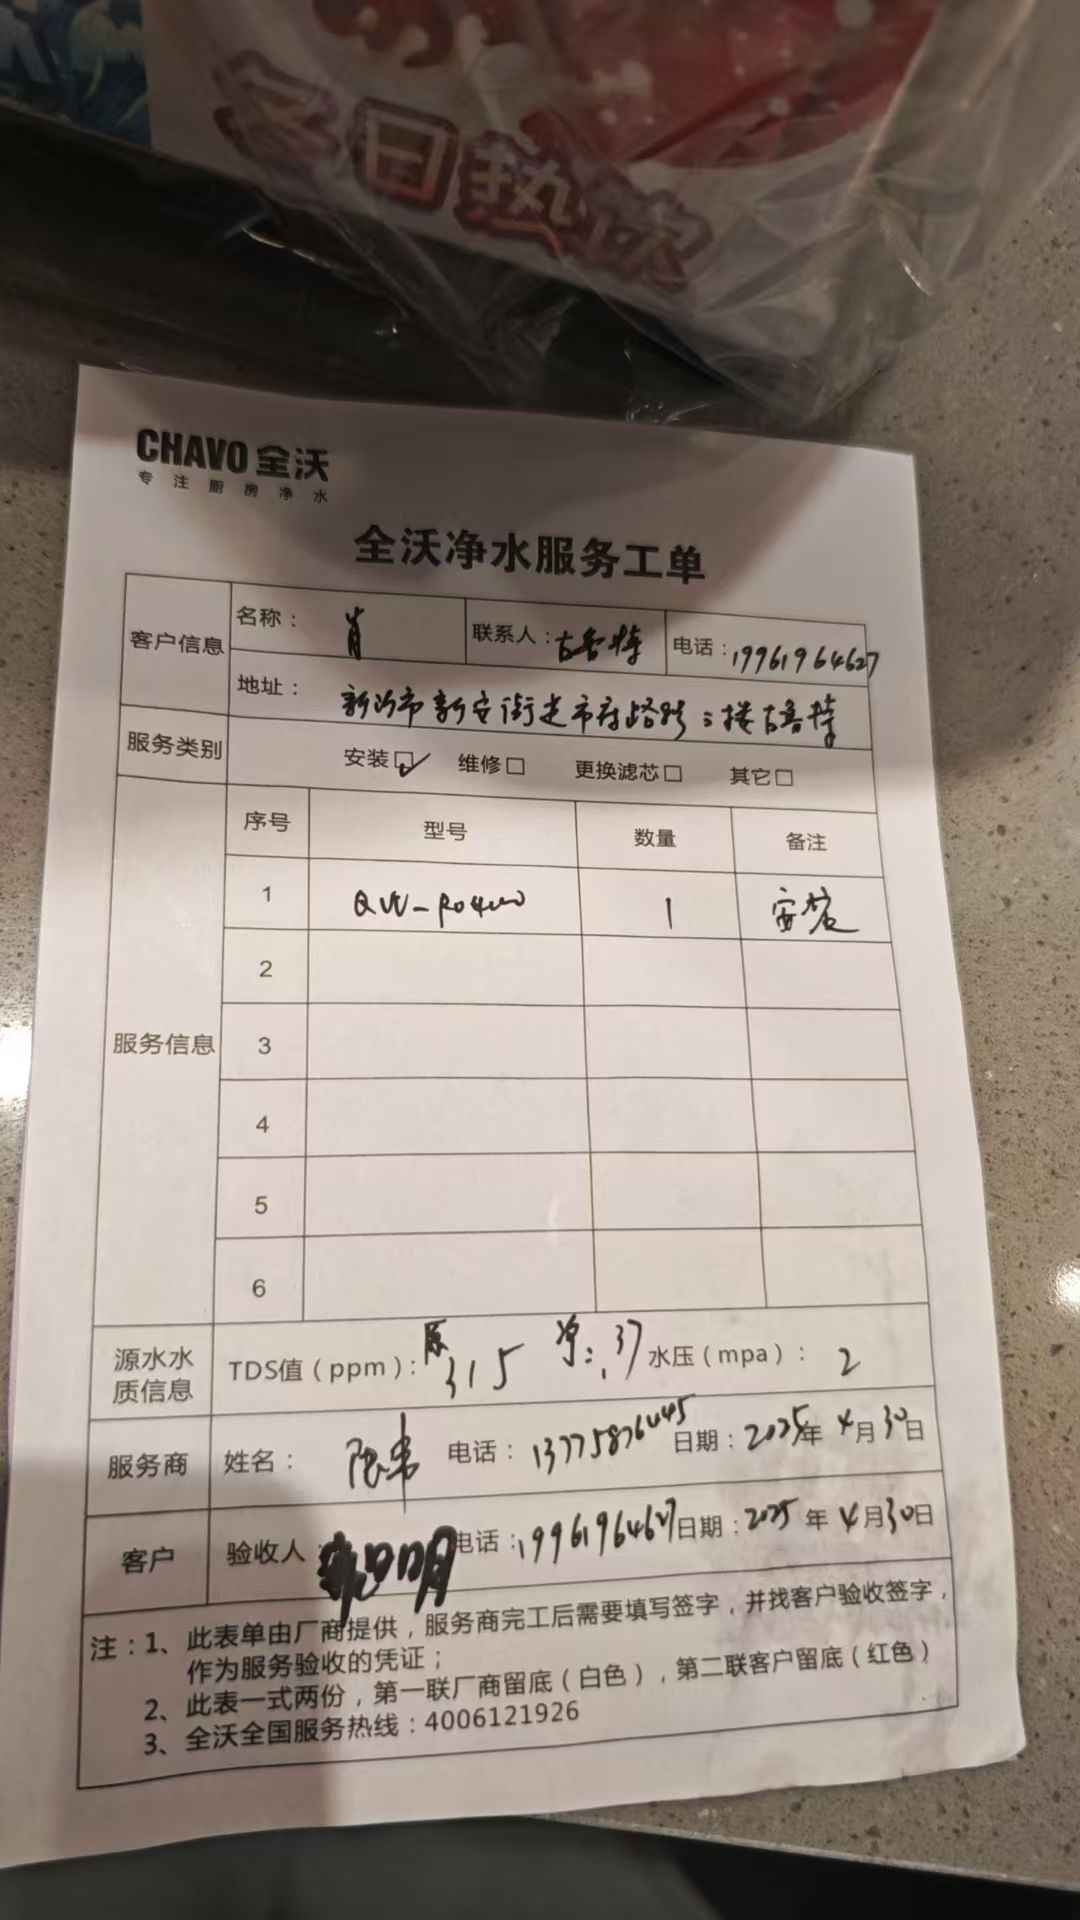 冬日热饮
CHAVO 全沃
专注厨房净水
全沃净水服务工单
客户信息 名称： 肖 联系人：古鲁特 电话：19961964627
地址： 新沂市新安街道市府路 二楼古鲁特
服务类别 安装☑ 维修□ 更换滤芯□ 其它□
服务信息 序号 型号 数量 备注
1 QW-RO400 1 安装
2
3
4
5
6
源水水质信息 TDS值（ppm）：原315 净：37 水压（mpa）：2
服务商 姓名： 电话：13775876445 日期：2025年4月30日
客户 验收人： 电话：19961964627 日期：2025年4月30日
注：1、此表单由厂商提供，服务商完工后需要填写签字，并找客户验收签字，
作为服务验收的凭证；
2、此表一式两份，第一联厂商留底（白色），第二联客户留底（红色）
3、全沃全国服务热线：4006121926